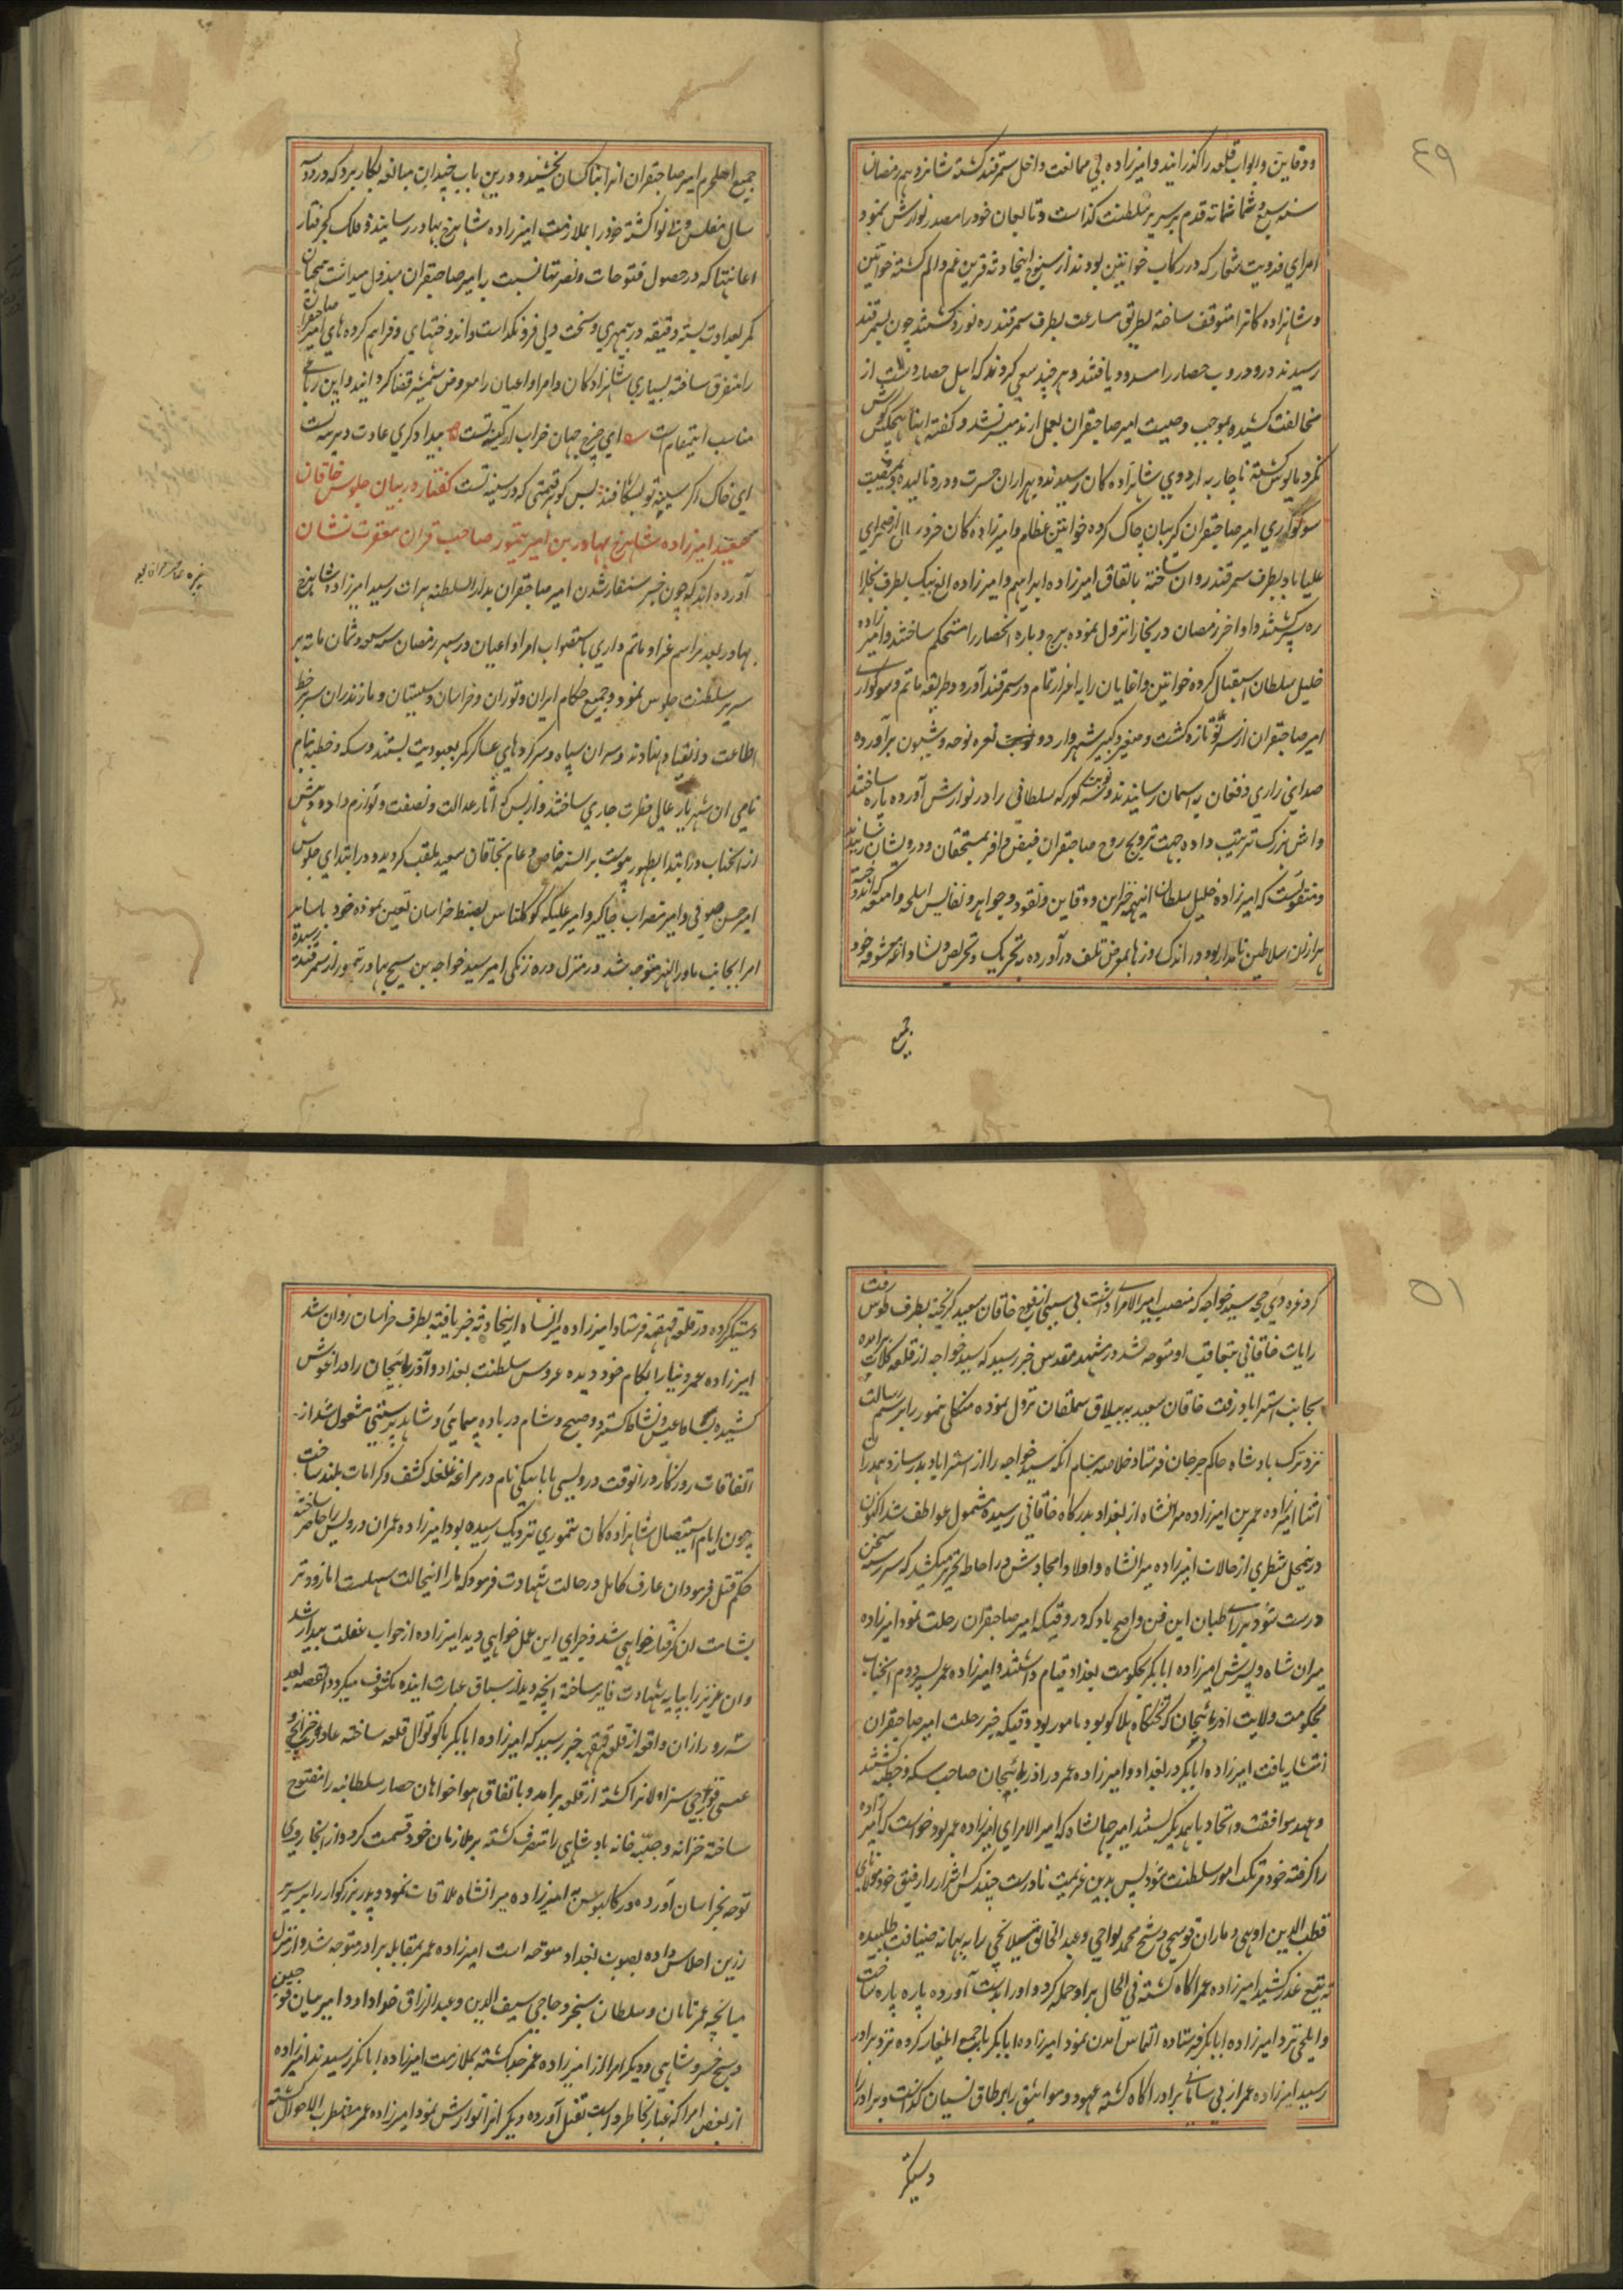 ٤٩
ودفاین وابواب قلعه را گذرانید وامیرزاده بی ممانعت داخل سمرقند گشته شانزدهم رمضان
سنه سبع وثمانمائه قدم بر سریر سلطنت گذاشت وتابعان خود را مصدر نوازش نمود
امرای فدویت شعار که در رکاب خوانین بودند از سنوح اینحادثه قرین غم والم گشته خواتین
وشاهزاده کانرا متوقف ساخته بطریق مسارعت بطرف سمرقند ره نورد گشتند چون بسمرقند
رسیدند در ودروب حصار را مسدود یافتند وهرچند سعی کردند که اهل حصار دست از
مخالفت کشیده بموجب وصیت امیر صاحبقران بعمل ارند میسر نشد وگفته اینها هیچکس گوش
نکرد مایوس گشته ناچار به اردوی شاهزاده کان رسیدند وبهزاران حسرت ودرد نالیده بمصیبت
سوگواری امیر صاحبقران گریبان چاک کرده خوانین عظام وامیرزاده کان خورد سال از صحرای
علیاباد بطرف سمرقند روان ساخته باتفاق امیرزاده ابراهیم وامیرزاده الغ بیک بطرف بخارا
ره سپر گشتند واواخر رمضان در بخارا نزول نموده برج وباره انحصار را مستحکم ساختند وامیرزاده
خلیل سلطان استقبال کرده خواتین واغایان را به اعزاز تمام در سمرقند آورد وطریقه ماتم وسوگواری
امیر صاحبقران از سر نو تازه گشت وصغیر وکبیر شهر وارد و نعره نوحه وشیون برآورده
صدای زاری وفغان به اسمان رسانیدند ونوبت کورکه سلطانی را در نوازش آورده پاره ساختند
واش بزرگ ترتیب داده جهت ترویح روح صاحبقران فیض وافر بمستحقان ودرویشان رسانیدند
ومنقولست که امیرزاده خلیل سلطان اینهمه خزاین ودفاین ونقود وجواهر ونفایس اسلحه وامتعه که اندوخته
هزاران سلاطین نامدار بود در اندک روز بمعرض تلف درآورده به تحریک وتحریص شاد اغا معشوقه خود
جمیع
جمیع اهل حرم امیر صاحبقران انرا بناکسان بخشید ودرین باب چندان مبالغه بکار برد که در دو سه
سال مفلس وبی نوا گشته خود را بملازمت امیرزاده شاهرخ بهادر رسانید وفلک کجرفتار
اعانتها که در حصول فتوحات ونصرتها نسبت به امیر صاحبقران مبذول میداشت همچنان
کمر بعداوت بسته دقیقه در بیمهری وسخت دلی فرو نگذاشت واندوختهای وفراهم کرده های امیر صاحبقران
را متفرق ساخته بسیاری شاهزادکان وامرا واعیان را معروض شمشیر قضا گردانید واین رباعی
مناسب اینمقام است ای چرخ جهان خراب از کینه تست بیدادگری عادت دیرینه تست
ای خاک اگر سینه تو بشکافند بس گوهر قیمتی که در سینه تست گفتار در بیان جلوس خاقان
سعید امیرزاده شاهرخ بهادر بن امیر تیمور صاحب قران مغفرت نشان
آورده اند که چون خبر سنقار شدن امیر صاحبقران بدارالسلطنه هرات رسید امیرزاده شاهرخ
بهادر بعد مراسم عزا وماتم داری باستصواب امرا واعیان در سهر رمضان سنه سبع وثمان مایه بر
سریر سلطنت جلوس نمود وجمیع حکام ایران وتوران وخراسان وسیستان ومازندران سر بر خط
اطاعت وانقیاد نهادند وسران سپاه وسرکرده های عساکر کمر بعبودیت بستند وسکه وخطبه بنام
نامی ان شهریار عالی فطرت جاری ساختند وازبس که اثار عدالت ونصفت ولوازم داد ودهش
از انجناب در ابتدا بظهور پیوست بر السنه خاص وعام بخاقان سعید ملقب گردید ودر ابتدای جلوس
امیر حسن صوفی وامیر مضراب جاکو وامیر علیکه کوکلتاش بضبط خراسان تعیین نموده خود با سایر
امرا بجانب ماورالنهر متوجه شد در منزل دره زنگی امیر سید خواجه بن شیخ علی بهادر تیمور از سمرقند رسیده
٥١
کرد غره ذی حجه سید خواجه که منصب امیر الامرایی داشت بی سببی از فوج خاقان سعید گریخته بطرف طوس رفت
رایات خاقانی بتعاقب او متوجه شد در مشهد مقدس خبر رسید که سید خواجه از قلعه کلات برامده
بجانب استراباد رفت خاقان سعید به ییلاق سملقان نزول نموده منکلی تیمور را برسم رسالت
نزد ترک پادشاه حاکم جرجان فرستاد خلاصه پیام آنکه سید خواجه را از استراباد بدر سازد و همدران
اثنا امیرزاده عمر بن امیرزاده میرانشاه از بغداد بدرگاه خاقانی رسیده مشمول عواطف شد اکنون
درینمحل شطری از حالات امیرزاده میرانشاه واولاد وامجادش در احاطه تحریر میکشد که سررشته سخن
درست شود بر رای طالبان این فن واضح باد که در وقتیکه امیر صاحبقران رحلت نمود امیرزاده
میران شاه وپسرش امیرزاده ابابکر بحکومت بغداد قیام داشتند وامیرزاده عمر پسر دوم انجناب
بحکومت ولایت اذربائیجان که تختگاه هلاکو بود مامور بود وقتیکه خبر رحلت امیر صاحبقران
انتشار یافت امیرزاده ابابکر در بغداد وامیرزاده عمر در اذربائیجان صاحب سکه وخطبه گشتند
وعهد موافقت واتحاد با همدیگر بستند امیر جهانشاه که امیر الامرای امیرزاده عمر بود خواست که امیرزاده
را گرفته خود مرتکب امور سلطنت شود پس بدین عزیمت نادرست چند کس اشرار را رفیق خود
قطب الدین اوبهی وماران قوسچی وشیخ محمد تواجی وعبد الخالق را به بهانه ضیافت طلبیده
به تیغ غدر کشید امیرزاده عمر اگاه گشته فی الحال بر او حمله کرد واورا بدست آورده پاره پاره ساخت
وایلچی نزد امیرزاده ابابکر فرستاده التماس امدن نمود امیرزاده ابابکر با جمع ایلغار کرده نزد برادر
رسید امیرزاده عمر از بی سامانی برادر اگاه گشته عهود ومواثیق را بر طاق نسیان گذاشت وبرادر را
دستگیر
دستگیر کرده در قلعه قهقهه فرستاد امیرزاده میرانشاه ازینحادثه خبر یافته بطرف خراسان روان شد
امیرزاده عمر دنیا را بکام خود دیده عروس سلطنت بغداد وآذربائیجان را در اغوش
کشیده بساط عیش ونشاط گسترد وصبح وشام در باده پیمایی وشاهد پرستی مشغول شد از
اتفاقات روزگار در انوقت درویشی بابا بیکی نام در مراغه غلغله کشف وکرامات بلند ساخت
چون ایام استیصال شاهزاده کان تیموری نزدیک رسیده بود امیرزاده عمر ان درویش را حاضر ساخته
حکم قتل فرمود ان عارف کامل در حالت شهادت فرمود که ما را اینحالت سهلست اما زودتر
بشامت ان گرفتار خواهی شد وجزای این عمل خواهی دید امیرزاده از خواب غفلت بیدار نشد
وان عزیز را بپایه شهادت فایز ساخته انچه دید از سیاق عبارت اینده مکشوف میگردد القصه بعد
سه روز ازان واقعه از قلعه قهقهه خبر رسید که امیرزاده ابابکر با کوتوال قلعه ساخته
عیسی قورچی سزاولانرا کشته از قلعه برامد وباتفاق هواخواهان حصار سلطانیه را مفتوح
ساخته خزانه وجبه خانه بادشاهی را متصرف گشته بر ملازمان خود قسمت کرد واز انجا روی
توجه بخراسان آورده در کالپوش امیرزاده میرانشاه ملاقات نمود وپدر بزرگوار را بر سریر
زرین اجلاس داده بصوب بغداد متوجه است امیرزاده عمر بمقابله برادر متوجه شد واز منزل
میانچه عمر تابان وسلطان سنجر وحاجی سیف الدین وعبد الرزاق خداداد وامیر بیان قوجین
وشیخ خسرو شاهی ودیگر امرا از امیرزاده عمر جدا گشته بملازمت امیرزاده ابابکر رسیدند امیرزاده
از بعض امرا که غبار بخاطر داشت بقتل آورده دیگر انرا نوازش نمود امیرزاده عمر مضطرب الاحوال گشته